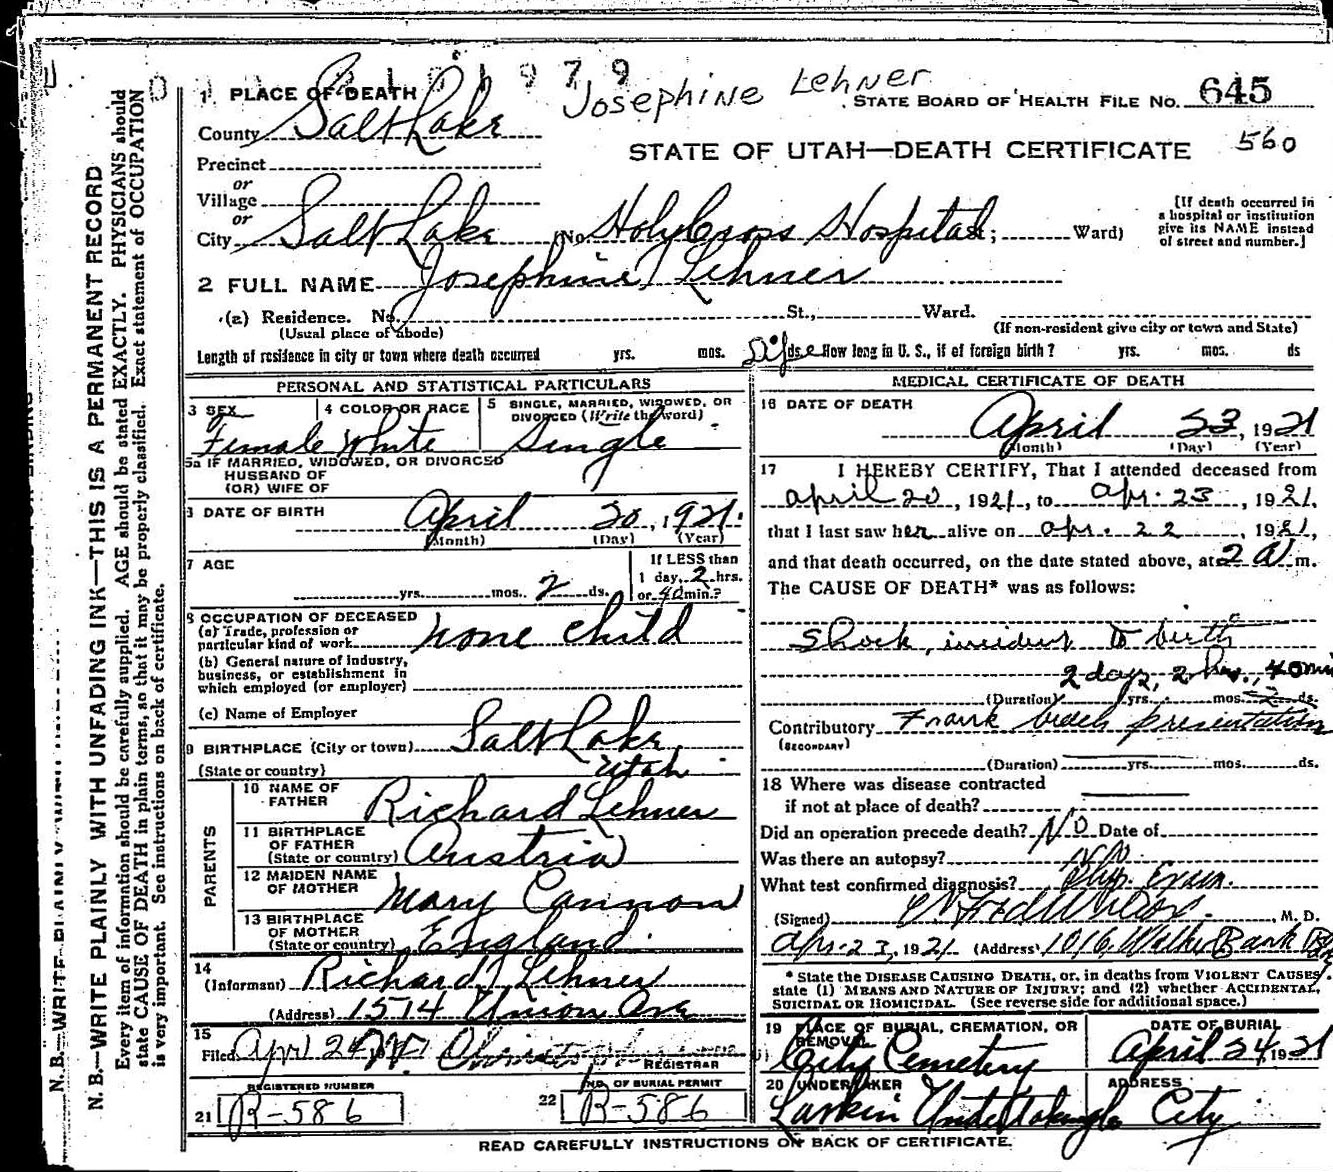 1979
Josephine Lehner
1 PLACE OF DEATH
STATE BOARD OF HEALTH FILE NO. 645
County Salt Lake
STATE OF UTAH—DEATH CERTIFICATE 560
Precinct
or
Village
or
City Salt Lake (No. Holy Cross Hospital; Ward)
[If death occurred in a hospital or institution give its NAME instead of street and number.]
2 FULL NAME Josephine Lehner
(a) Residence. No. St., Ward.
(Usual place of abode) (If non-resident give city or town and State)
Length of residence in city or town where death occurred yrs. mos. Life ds. How long in U. S., if of foreign birth? yrs. mos. ds
PERSONAL AND STATISTICAL PARTICULARS
3 SEX 4 COLOR OR RACE 5 SINGLE, MARRIED, WIDOWED, OR DIVORCED (Write the word)
Female White Single
5a IF MARRIED, WIDOWED, OR DIVORCED
HUSBAND OF
(OR) WIFE OF
DATE OF BIRTH April 20, 1921.
(Month) (Day) (Year)
7 AGE yrs. mos. 2 ds. If LESS than 1 day, 2 hrs. or 40 min.?
8 OCCUPATION OF DECEASED
(a) Trade, profession or particular kind of work none child
(b) General nature of industry, business, or establishment in which employed (or employer)
(c) Name of Employer
9 BIRTHPLACE (City or town) Salt Lake,
(State or country) Utah
PARENTS
10 NAME OF FATHER Richard Lehner
11 BIRTHPLACE OF FATHER (State or country) Austria
12 MAIDEN NAME OF MOTHER Mary Cannon
13 BIRTHPLACE OF MOTHER (State or country) England.
14 (Informant) Richard Lehner
(Address) 1514 Union Ave
15 Filed April 24
REGISTRAR
REGISTERED NUMBER
21 R-586
NO. OF BURIAL PERMIT
22 R-586
MEDICAL CERTIFICATE OF DEATH
16 DATE OF DEATH
April 23, 1921
(Month) (Day) (Year)
17 I HEREBY CERTIFY, That I attended deceased from
april 20, 1921, to apr. 23, 1921,
that I last saw her alive on apr. 22, 1921,
and that death occurred, on the date stated above, at 2 a m.
The CAUSE OF DEATH* was as follows:
Shock, incident to birth
2 days, 2 hrs., 40 min
(Duration) yrs. mos. 2 ds.
Contributory Frank breech presentation
(SECONDARY)
(Duration) yrs. mos. ds.
18 Where was disease contracted
if not at place of death?
Did an operation precede death? No Date of
Was there an autopsy? No
What test confirmed diagnosis? Phy. Exam.
(Signed) , M. D.
Apr. 23, 1921 (Address) 1016 Walker Bank
* State the DISEASE CAUSING DEATH, or, in deaths from VIOLENT CAUSES, state (1) MEANS AND NATURE OF INJURY; and (2) whether ACCIDENTAL, SUICIDAL OR HOMICIDAL. (See reverse side for additional space.)
19 PLACE OF BURIAL, CREMATION, OR REMOVAL DATE OF BURIAL
City Cemetery April 24, 1921
20 UNDERTAKER ADDRESS
Larkin Undertaking Co City
READ CAREFULLY INSTRUCTIONS ON BACK OF CERTIFICATE.
N. B.—WRITE PLAINLY WITH UNFADING INK—THIS IS A PERMANENT RECORD
Every item of information should be carefully supplied. AGE should be stated EXACTLY. PHYSICIANS should
state CAUSE OF DEATH in plain terms, so that it may be properly classified. Exact statement of OCCUPATION
is very important. See instructions on back of certificate.